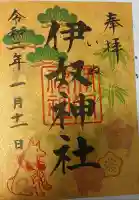 奉拝
伊奴神社
いぬ
令和二年一月十一日